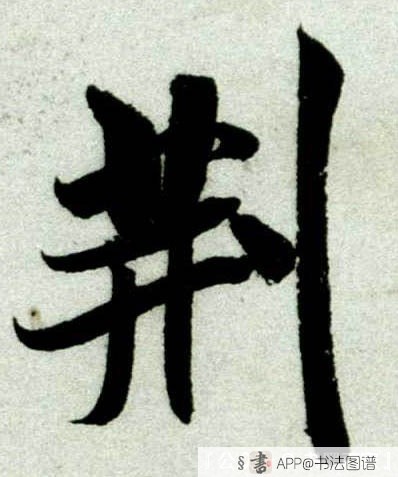 荆
§ 書 APP@书法图谱